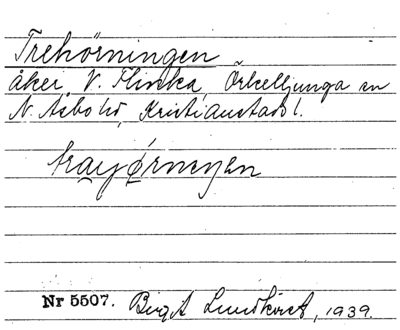 Trehörningen
åker, V. Flinka, Örkelljunga sn
N. Åsbo hd, Kristianstads l.
Nr 5507. Birgit Lundkvist, 1939.